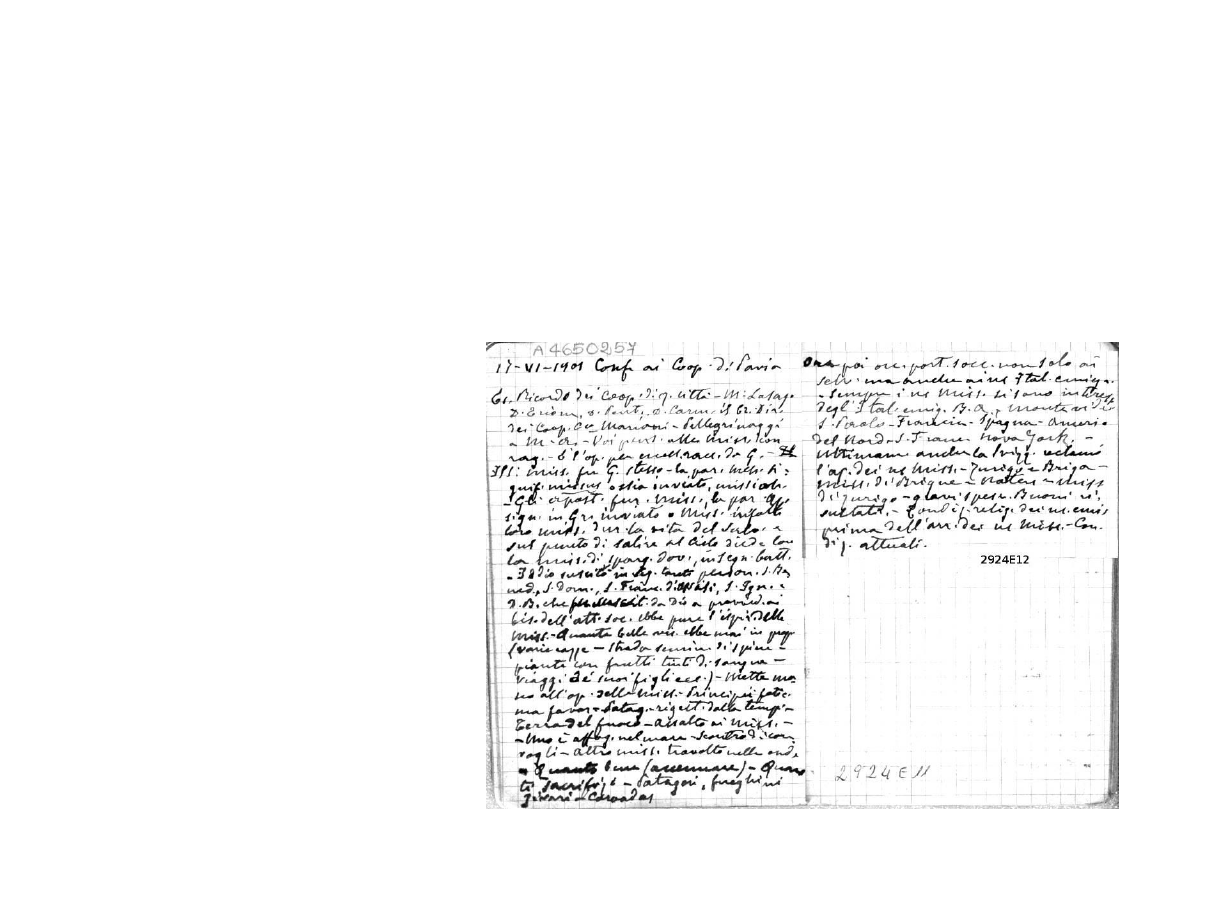 A4650257
17-VI-1901 Conf ai Coop. di Pavia
Es. Ricordo dei Coop. di q. città - M. Lasag.
dei Coop. - Pellegrinaggi
a M. A. - Voi part. alle miss. con
rag. - è l'op. per eccell. racc. da G. -
I miss. fu G. stesso - la par. miss. si-
gnif. missus ossia inviato,
- Gli apost. fur. miss., la par. ap.
sign. in Gr. inviato o Miss. infatti
loro miss. dur. la vita del Salv. e
sul punto di salire al Cielo diede lor
la miss. di sparg. dov., insegn. batt.
- Iddio suscitò in seg. tanti person. S. Be
ned., S. Dom., S. Franc. d'Assisi, S. Ign. e
D. B. che fu da Dio a provved. ai
bis. dell'att. soc. ebbe pure l'ispir. delle
Miss. - Quante belle vis. ebbe mai in prop
(varie razze - strada semin. di spine -
piante con frutti tinti di sangue -
viaggi de' suoi figli ecc.) - Mette ma
no all'op. delle miss. - Principii fatic.
ma favor. - Patag. - rigett. dalla temp. -
Terra del fuoco - assalto ai miss. -
- Uno è affog. nel mare - scontro di con
vogli - altro miss. travolto nelle onde
- Quanto bene (accennare) - Quan
ti sacrifizi - Patagoni, fueghini
Jivari - Coroados
Ora poi occ. port. socc. non solo ai
selv. ma anche ai ns Ital. emigr.
- sempre i ns Miss. si sono interess
degl'Ital. emig. B. A., Montevideo
S. Paolo - Francia - Spagna - Americ
del Nord - S. Franc. Nova York. -
Ultimam. anche la Svizz. reclamò
l'ap. dei ns Miss. - Zurigo e Briga -
Miss. di Brigue - Naters - Miss
di Zurigo - gravi spese. Buoni ri-
sultati. - Condiz. relig. dei ns. emig
prima dell'arr. dei ns Miss. - Con-
diz. attuali.
2924E12
2924E11